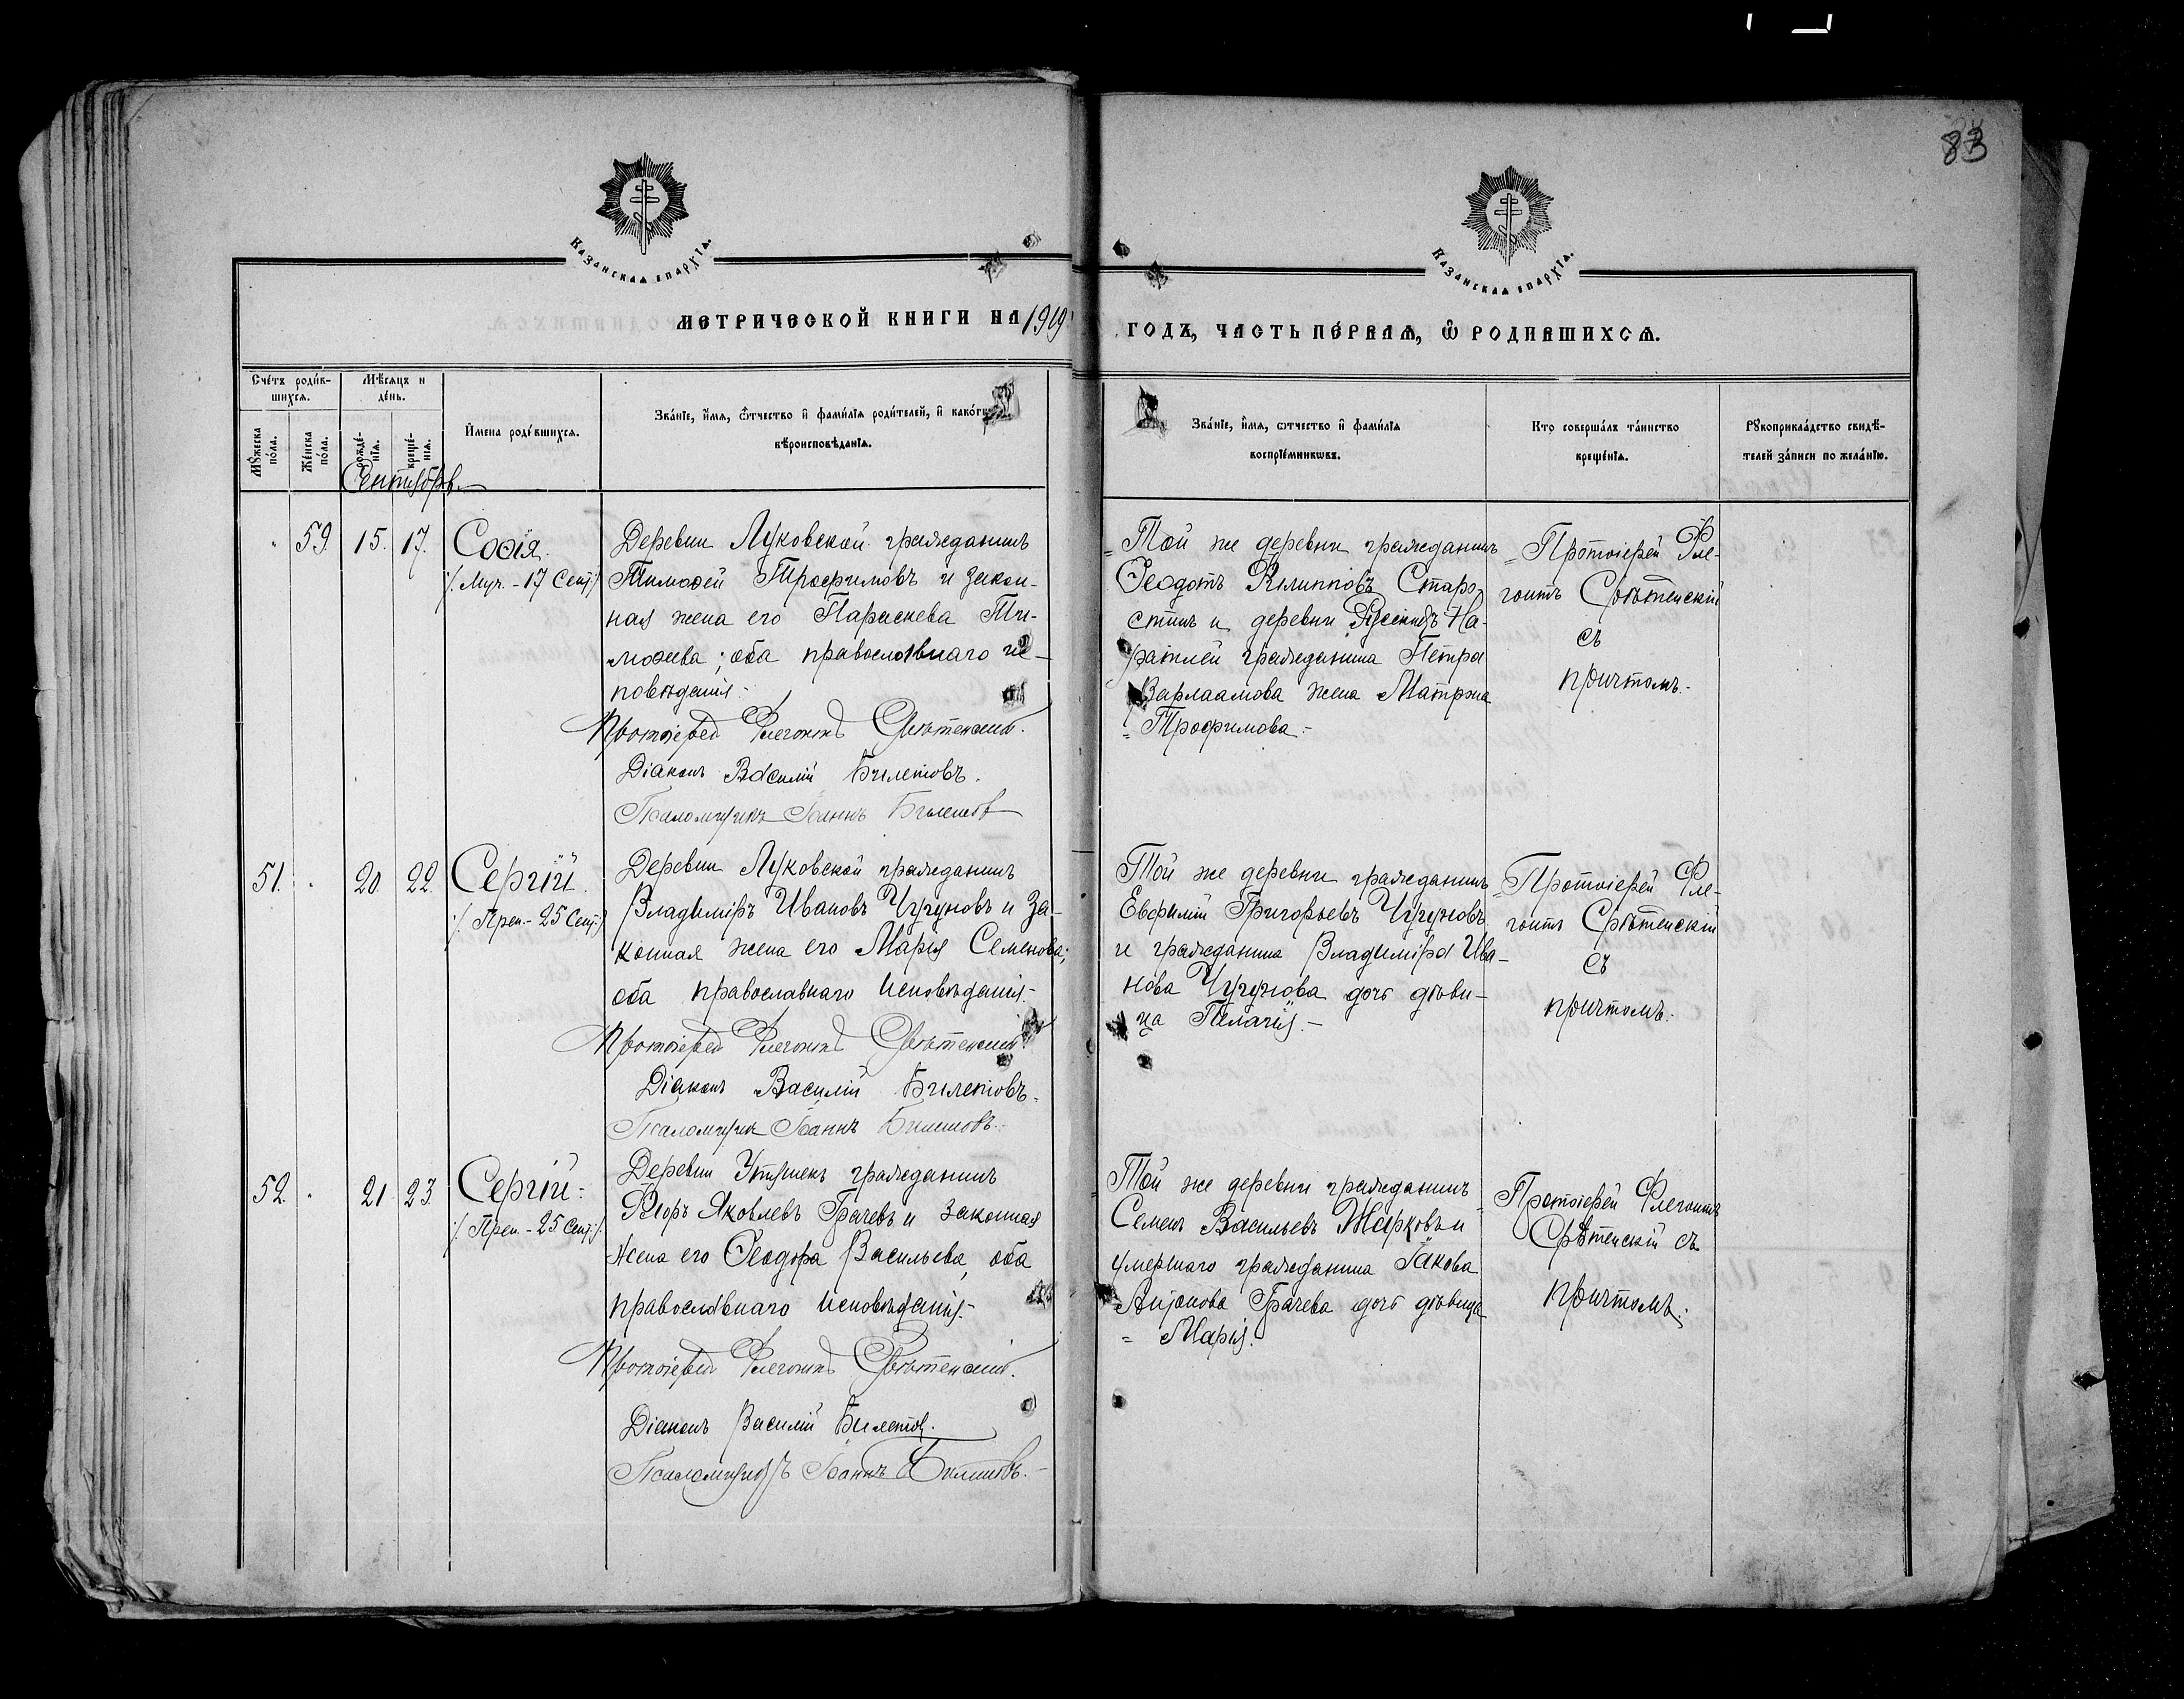 83
Казанская епархїѧ.
Казанская епархїѧ.
МЕТРИЧЕСКОЙ КНИГИ НА 1919
ГОДЪ, ЧАСТЬ ПЕ́РВАѦ, Ѽ РОДИВШИХСѦ.
Сче́тъ роди́в-
шихсѧ.
Мꙋ́жеска по́ла.
Же́нска по́ла.
Мѣ́сѧцъ и де́нь.
рожде́-
нїѧ.
креще́-
нїѧ.
И҆мена роди́вшихсѧ.
Зва́нїе, и҆́мѧ, ѻ҆́тчество и҆ фами́лїѧ роди́телей, и҆ како́гѡ
вѣроисповѣ́данїѧ.
Зва́нїе, и҆́мѧ, ѻтчество и҆ фами́лїѧ
воспрїе́мникѡвъ.
Кто соверша́лъ та́инство
креще́нїѧ.
Рꙋкоприкла́дство свидѣ́-
телей за́писи по жела́нїю.
Сентябрь.
" 59. 15. 17.
Софія.
/. Муч. - 17 Сент./
Деревни Луковской гражданинъ
Тимофей Трофимовъ и закон-
ная жена его Параскева Ти-
мофеева; оба православнаго ис-
повѣданія.-
Протоіерей Флегонтъ Срѣтенскій.
Діаконъ Василій Билетовъ.
Псаломщикъ Іоаннъ Билетовъ
Той же деревни гражданинъ
Феодотъ Филипповъ Старо-
стинъ и деревни
гражданина Петра
Варлаамова жена Матрона
Трофимова.-
Протоіерей Фле-
гонтъ Срѣтенскій
съ
причтомъ.-
51. " 20. 22.
Сергій.
/. Преп. - 25 Сент./
Деревни Луковской гражданинъ
Владиміръ Ивановъ Чугуновъ и за-
конная жена его Марія Семенова;
оба православнаго исповѣданія.-
Протоіерей Флегонтъ Срѣтенскій.
Діаконъ Василій Билетовъ.
Псаломщик Іоаннъ Билетовъ.-
Той же деревни гражданинъ
Евфимій Григорьевъ Чугуновъ
и гражданина Владиміра Ива-
нова Чугунова дочь дѣви-
ца Пелагія.-
Протоіерей Фле-
гонтъ Срѣтенскій
съ
причтомъ.-
52. " 21 23
Сергій.-
/. Преп. - 25 Сент./
Деревни Утяшекъ гражданинъ
Егоръ Яковлевъ Грачевъ и законная
жена его Феодора Васильева, оба
православнаго исповѣданія.-
Протоіерей Флегонтъ Срѣтенскій.
Діаконъ Василій Билетов.
Псаломщикъ Іоаннъ Билетовъ.-
Той же деревни гражданинъ
Семенъ Васильевъ Жарковъ и
умершаго гражданина Іакова
Грачева дочь дѣвица
Марія.
Протоіерей Флегонтъ
Срѣтенскій съ
причтомъ.